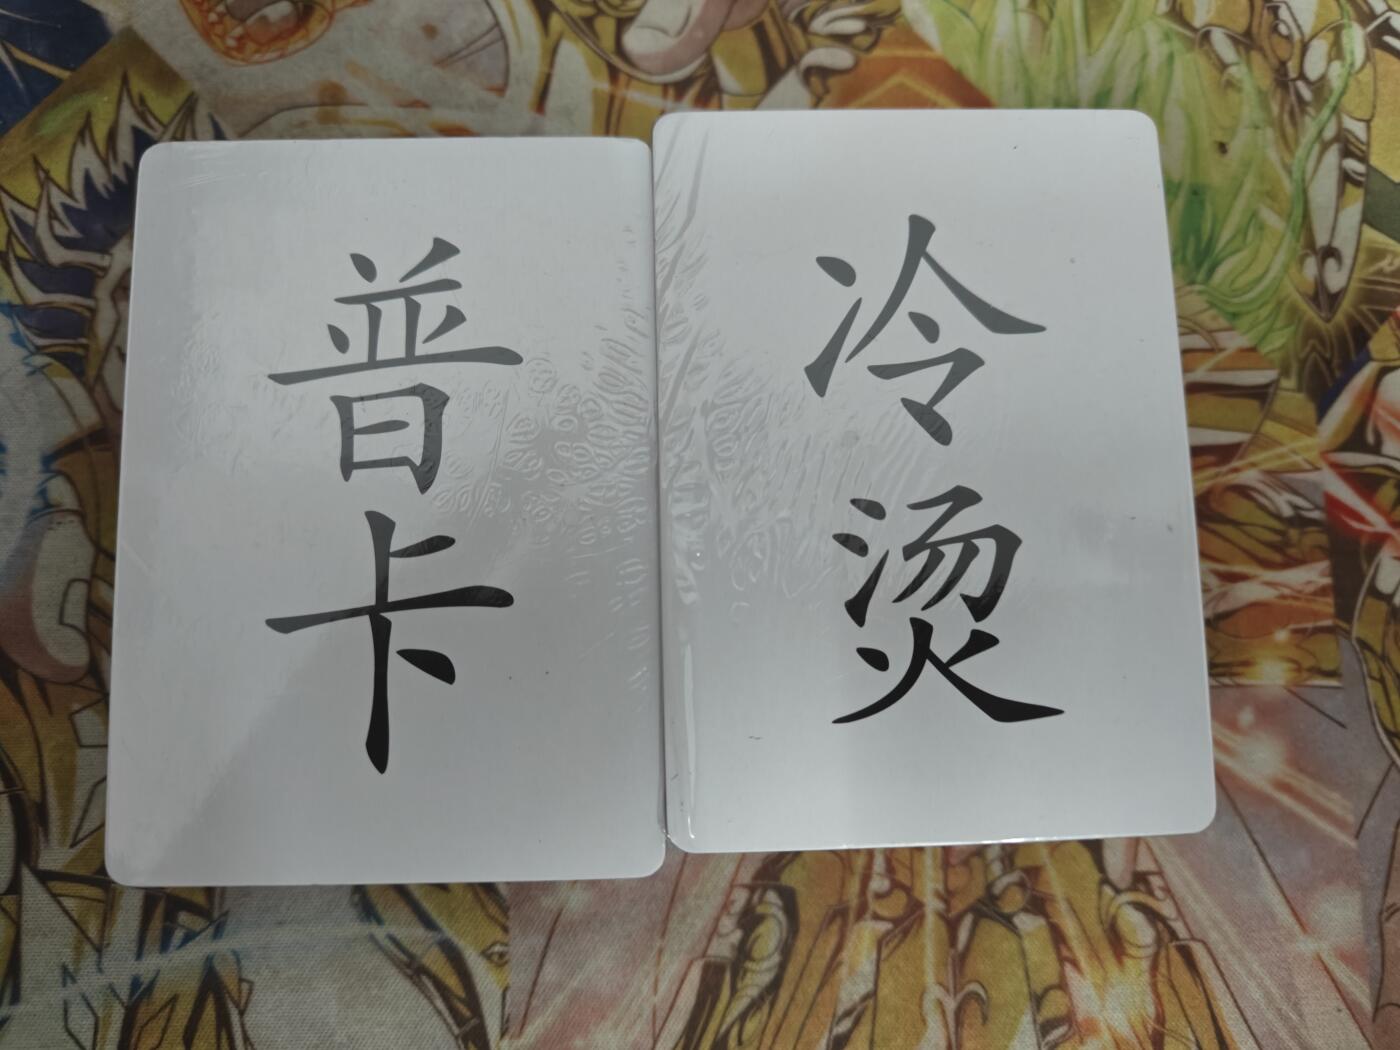 普卡
冷烫